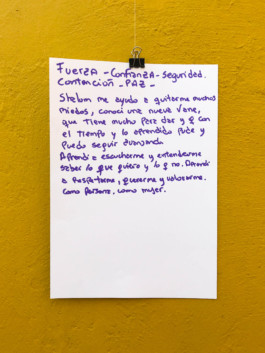 Fuerza - Confianza - Seguridad.
Contención - PAZ -
Shalom me ayudo a quitarme muchos
miedos, conocí una nueva Vane,
que tiene mucho para dar y q con
el tiempo y lo aprendido pude y
puedo seguir avanzando
Aprendi a escucharme y entenderme
saber lo que quiero y lo q no. Aprendi
a Respetarme, quererme y valorarme.
como persona, como mujer.